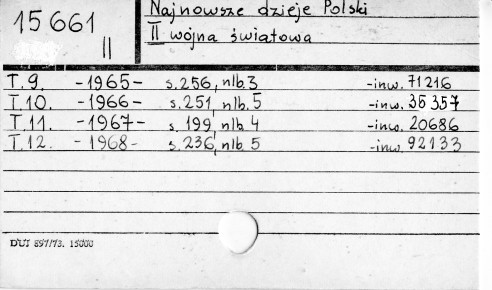 15 661
II
Najnowsze dzieje Polski
II wojna światowa
T. 9. -1965- s. 256, nlb. 3 -inw. 71216
T. 10. -1966- s. 251, nlb. 5 -inw. 36357
T. 11. -1967- s. 199, nlb. 4 -inw. 20686
T. 12. -1968- s. 236, nlb. 5 -inw. 92133
DUJ 897/73. 15000